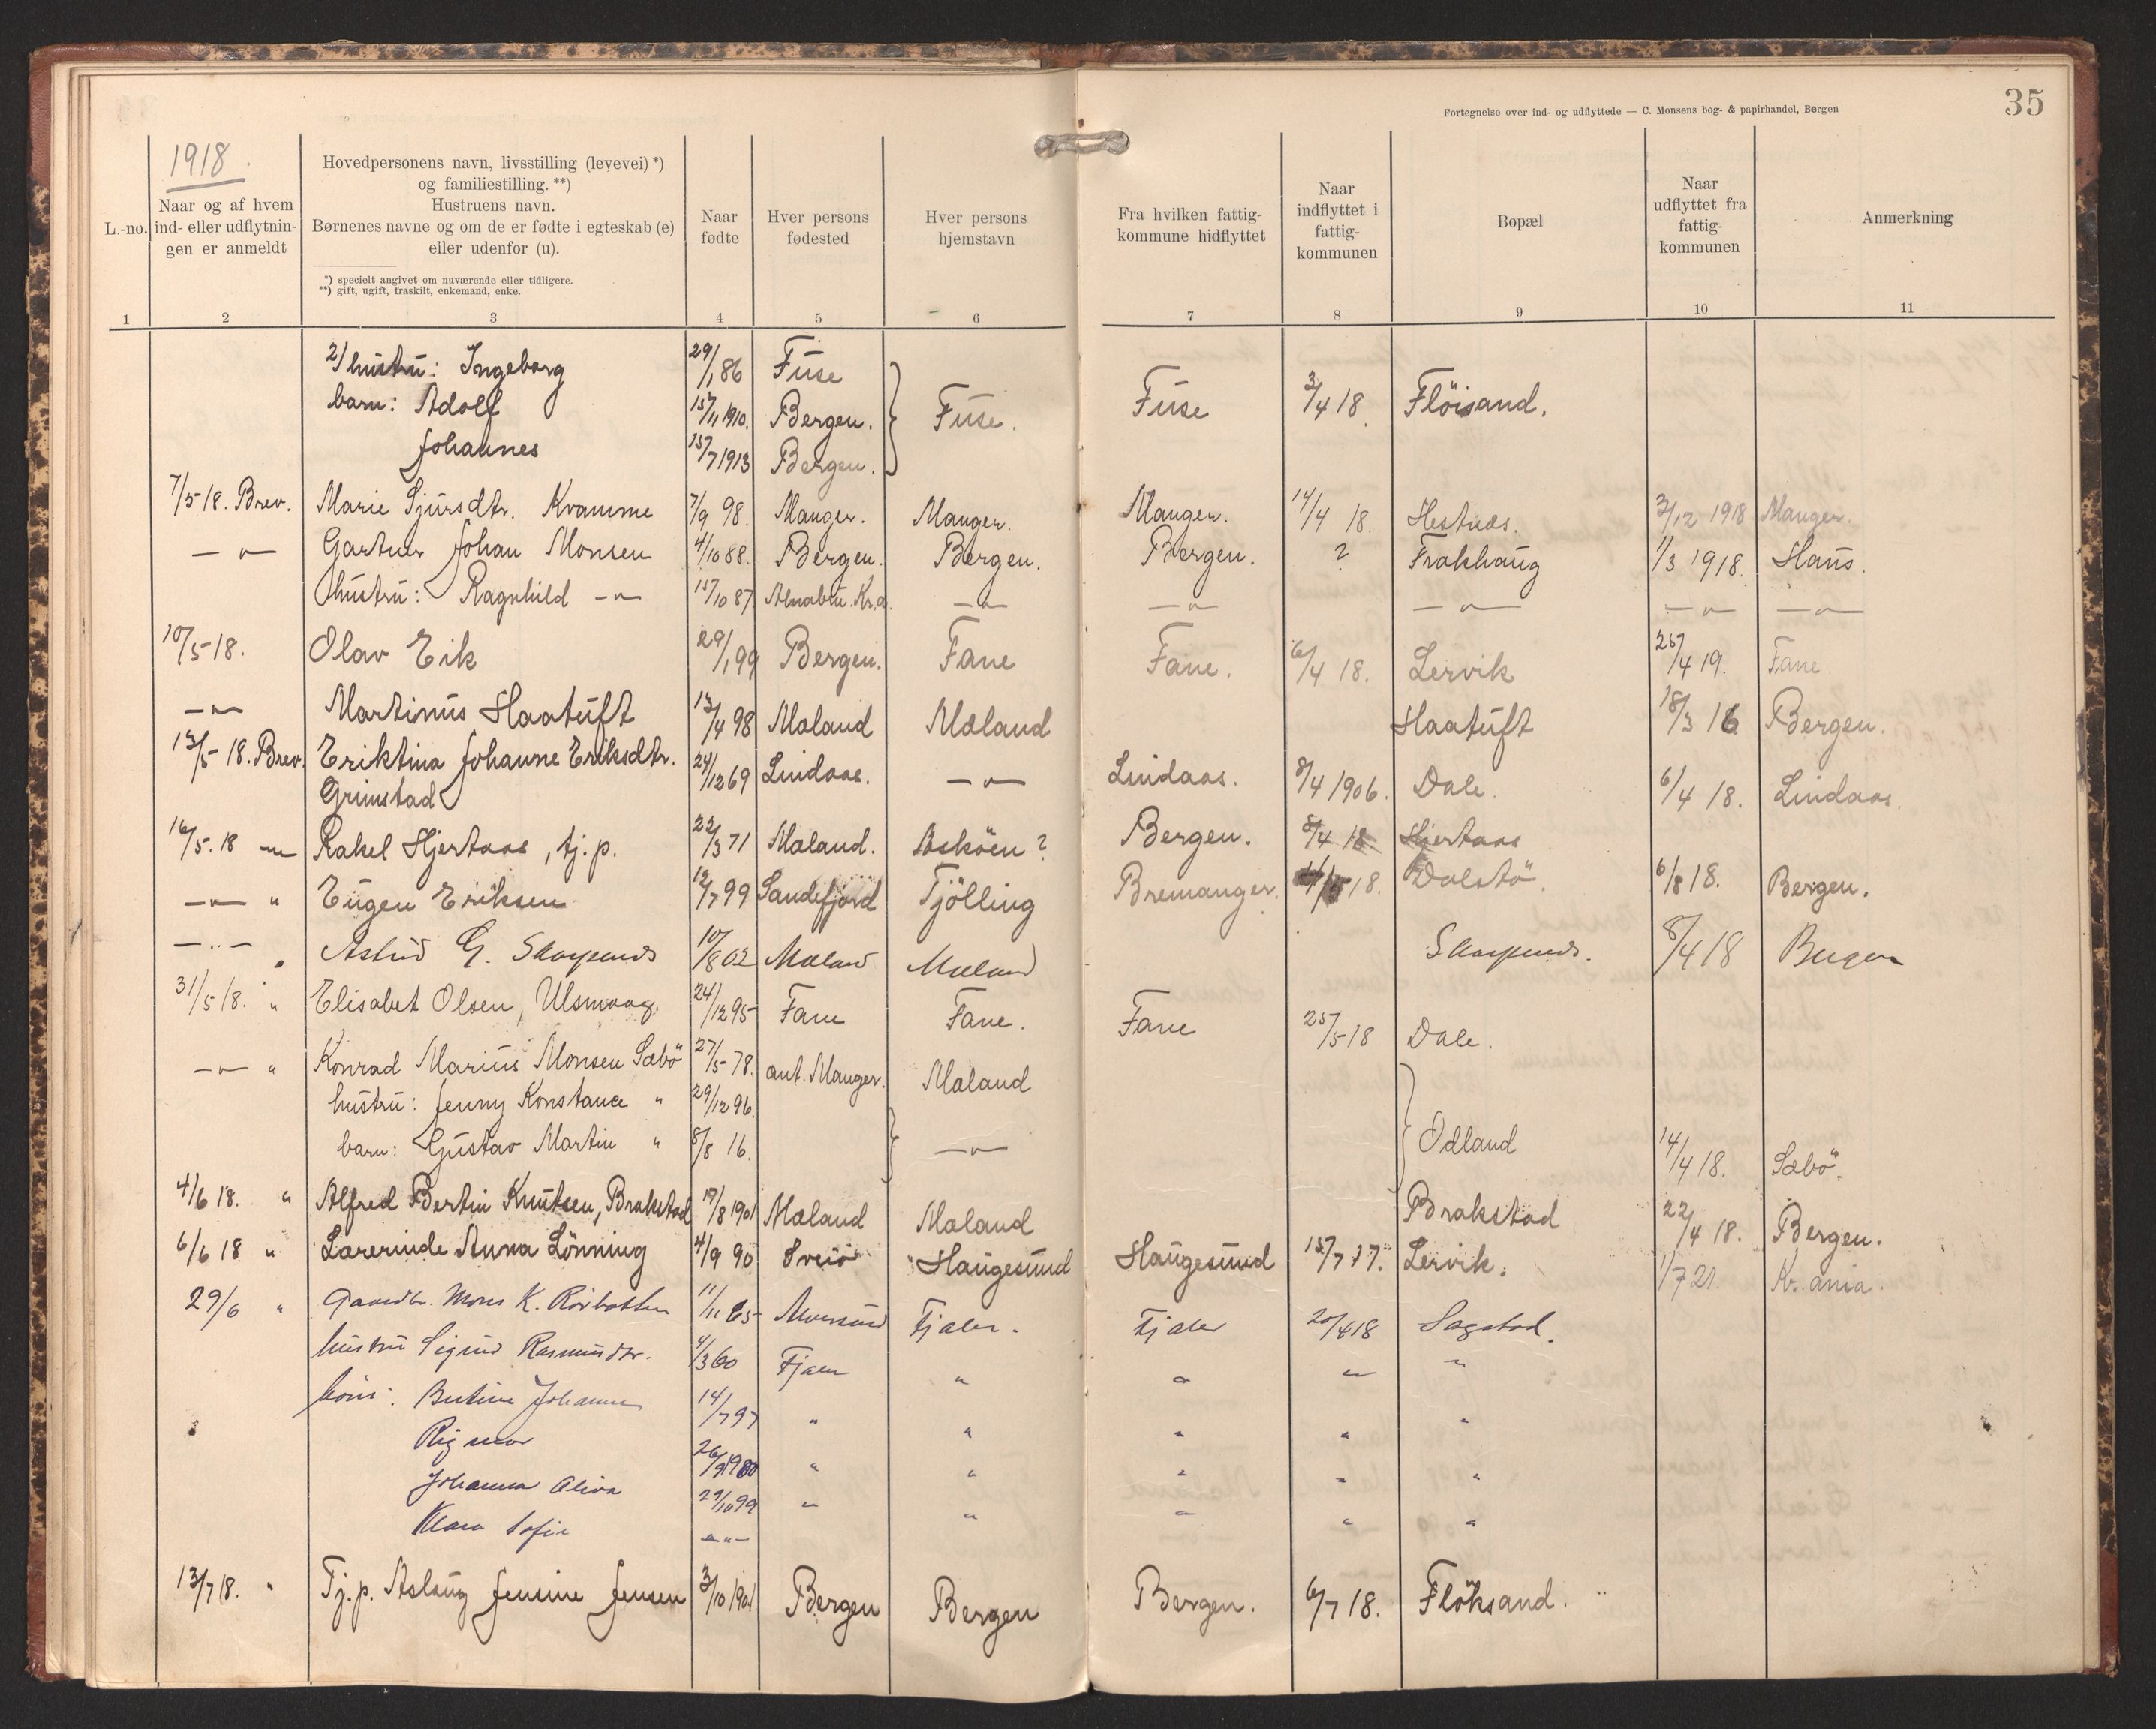 Fortegnelse over ind- og udflyttede — C. Monsens bog- & papirhandel, Bergen
35
1918.
L.-no.
Naar og af hvem
ind- eller udflytnin-
gen er anmeldt
Hovedpersonens navn, livsstilling (levevei) *)
og familiestilling. **)
Hustruens navn.
Børnenes navne og om de er fødte i egteskab (e)
eller udenfor (u).
*) specielt angivet om nuværende eller tidligere.
**) gift, ugift, fraskilt, enkemand, enke.
Naar
fødte
Hver persons
fødested
Hver persons
hjemstavn
Fra hvilken fattig-
kommune hidflyttet
Naar
indflyttet i
fattig-
kommunen
Bopæl
Naar
udflyttet fra
fattig-
kommunen
Anmerkning
1 2 3 4 5 6 7 8 9 10 11
2/ hustru: Ingeborg 29/1 86 Fuse
barn: Adolf 15/11 1910. Bergen. Fuse. Fuse 3/4 18. Flöisand.
Johannes 15/7 1913 Bergen.
7/5 18. Brev. Marie Sjursdtr. Kvamme 7/9 98. Manger. Manger. Manger. 14/4 18. Hestnes. 3/12 1918 Manger.
— " — Gartner Johan Monsen 4/10 88. Bergen. Bergen. Bergen. ? Frakhaug 1/3 1918. Haus.
hustru: Ragnhild — " — 15/10 87. Alnabru. Kr.a. — " — — " — — " — — " — — " —
10/5 18. Olav Eik 29/1 99 Bergen. Fane Fane. 6/4 18. Lervik 25/4 19. Fane
— " — Martinus Haatuft 13/4 98 Mæland Mæland Haatuft 18/3 16 Bergen.
13/5 18. Brev. Eriktina Johanne Eriksdtr. 24/12 69 Lindaas. — " — Lindaas. 8/4 1906. Dale. 6/4 18. Lindaas.
Grimstad
16/5. 18 — " — Rakel Hjertaas, tj.p. 22/3 71 Mæland. Asköen? Bergen. 8/4 18 Hjertaas
— " — " Eugen Eriksen 12/7 99 Sandefjord Tjölling Bremanger. 18. Dalstö. 6/8 18. Bergen.
— " — Astrid G. 10/8 02 Mæland Mæland 8/4 18 Bergen
31/5 18. " Elisabet Olsen, Ulsmaag. 24/12 95 Fane Fane. Fane 25/5 18 Dale.
— " — " Konrad Marius Monsen Sæbö 27/5 78. ant. Manger. Mæland
hustru: Jenny Konstance " 29/12 96.
barn: Gustav Martin " 8/8 16. — " — Odland 14/4 18. Sæbö.
4/6 18. " Alfred Bertin Knutsen, Brakstad 19/8 1901 Mæland Mæland Brakstad 22/4 18. Bergen.
6/6 18 " Lærerinde Anna Lönning 4/9 90 Sveiö Haugesund Haugesund 15/7 17. Lervik. 1/7 21. Kr.ania.
29/6 " Gaardbr. Mons K. 11/11 65 Alversund Fjaler. Fjaler 20/4 18 Sagstad.
hustru Sigrid Rasmusdtr. 4/3 60 Fjaler " " " "
börn: Bertine Johanne 14/7 97 " " " " "
Rigmor 26/9 1900 " " " " "
Johanna Oliva 29/10 99 " " " " "
Klara Sofie — " —
13/7 18. " Tj.p. Aslaug Jensine Jensen 3/10 1901 Bergen Bergen Bergen. 6/7 18. Flöksand.